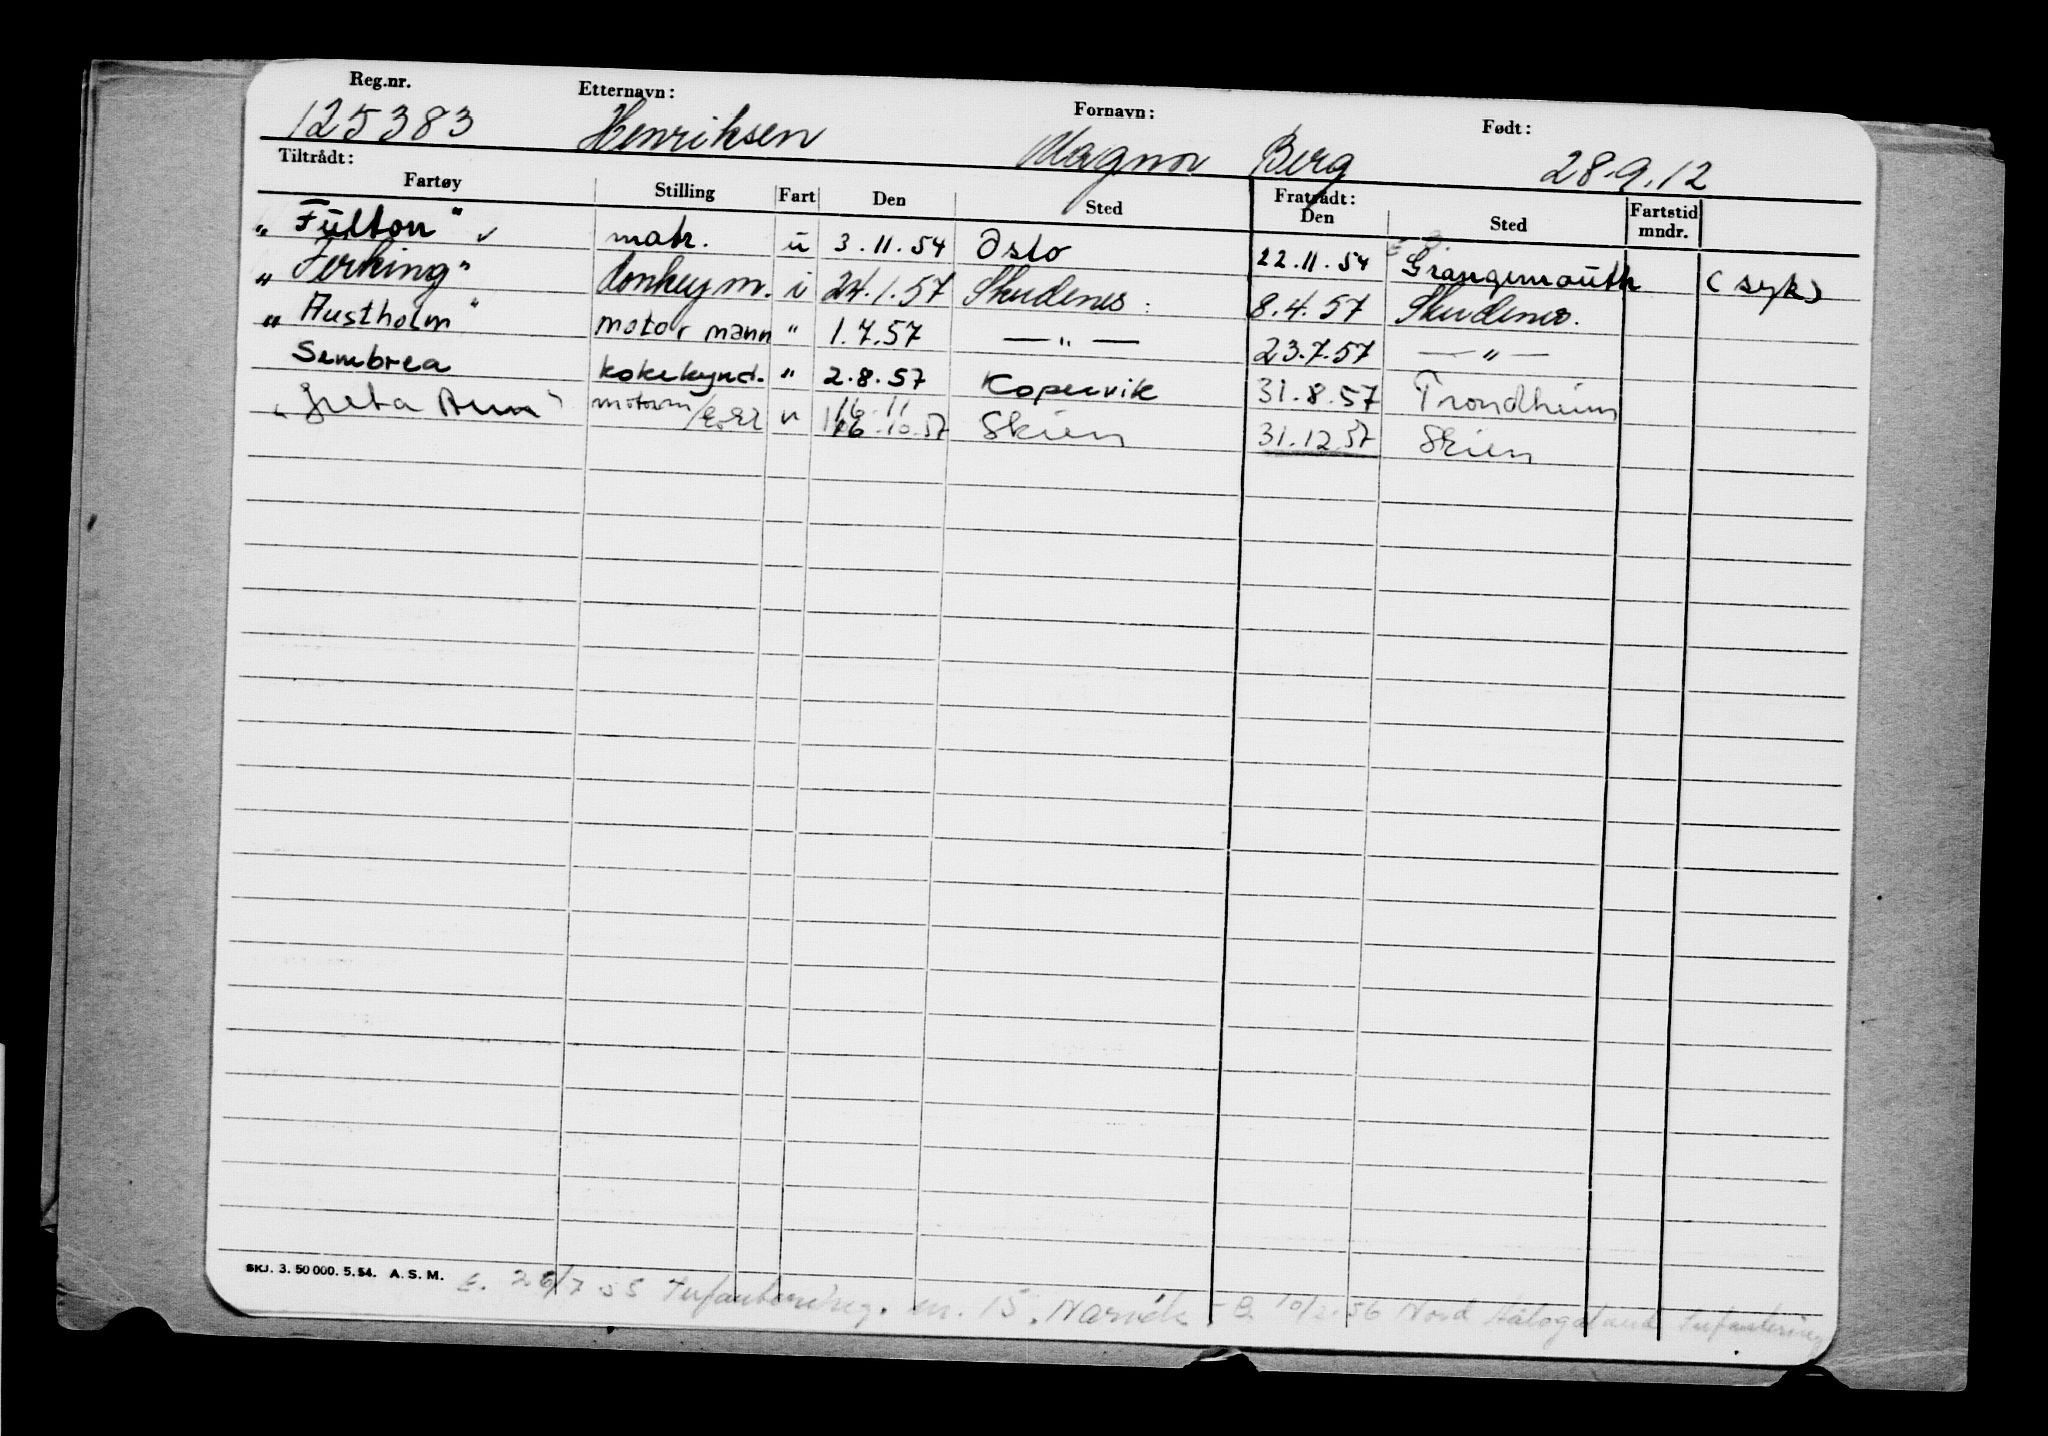 Reg.nr. Etternavn: Fornavn: Født:
125383 Henriksen Magnor Berg 28.9.12
Tiltrådt: Fratrådt:
Fartøy Stilling Fart Den Sted Den Sted Fartstid mndr.
"Fulton" ✓ matr. u 3.11.54 Oslo 22.11.54 Grangemouth (syk)
"Jerking" donkeym. i 24.1.57 Skudenes 8.4.57 Skudenes.
"Austholm" motormann " 1.7.57 — " — 23.7.57 — " —
Sembrea kokekynd. " 2.8.57 Kopervik 31.8.57 Trondheim
"Greta Ann" motorm 16.11 16.10.57 Skien 31.12.57 Skien
SKJ. 3. 50 000. 5. 54. A. S. M. E. 26/7 55 Infanterireg. nr. 15. Narvik 10/2.56 Nord Hålogaland Infanterireg